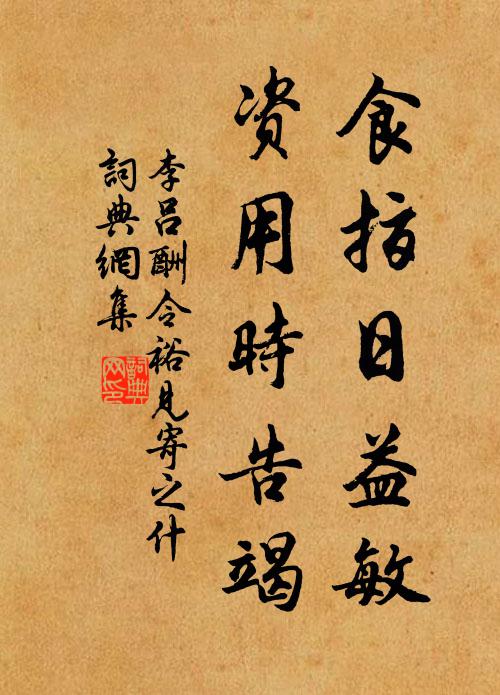 食指日益敏
资用時告竭
李吕酬令裕見寄之什
詞典網集
詞典网印